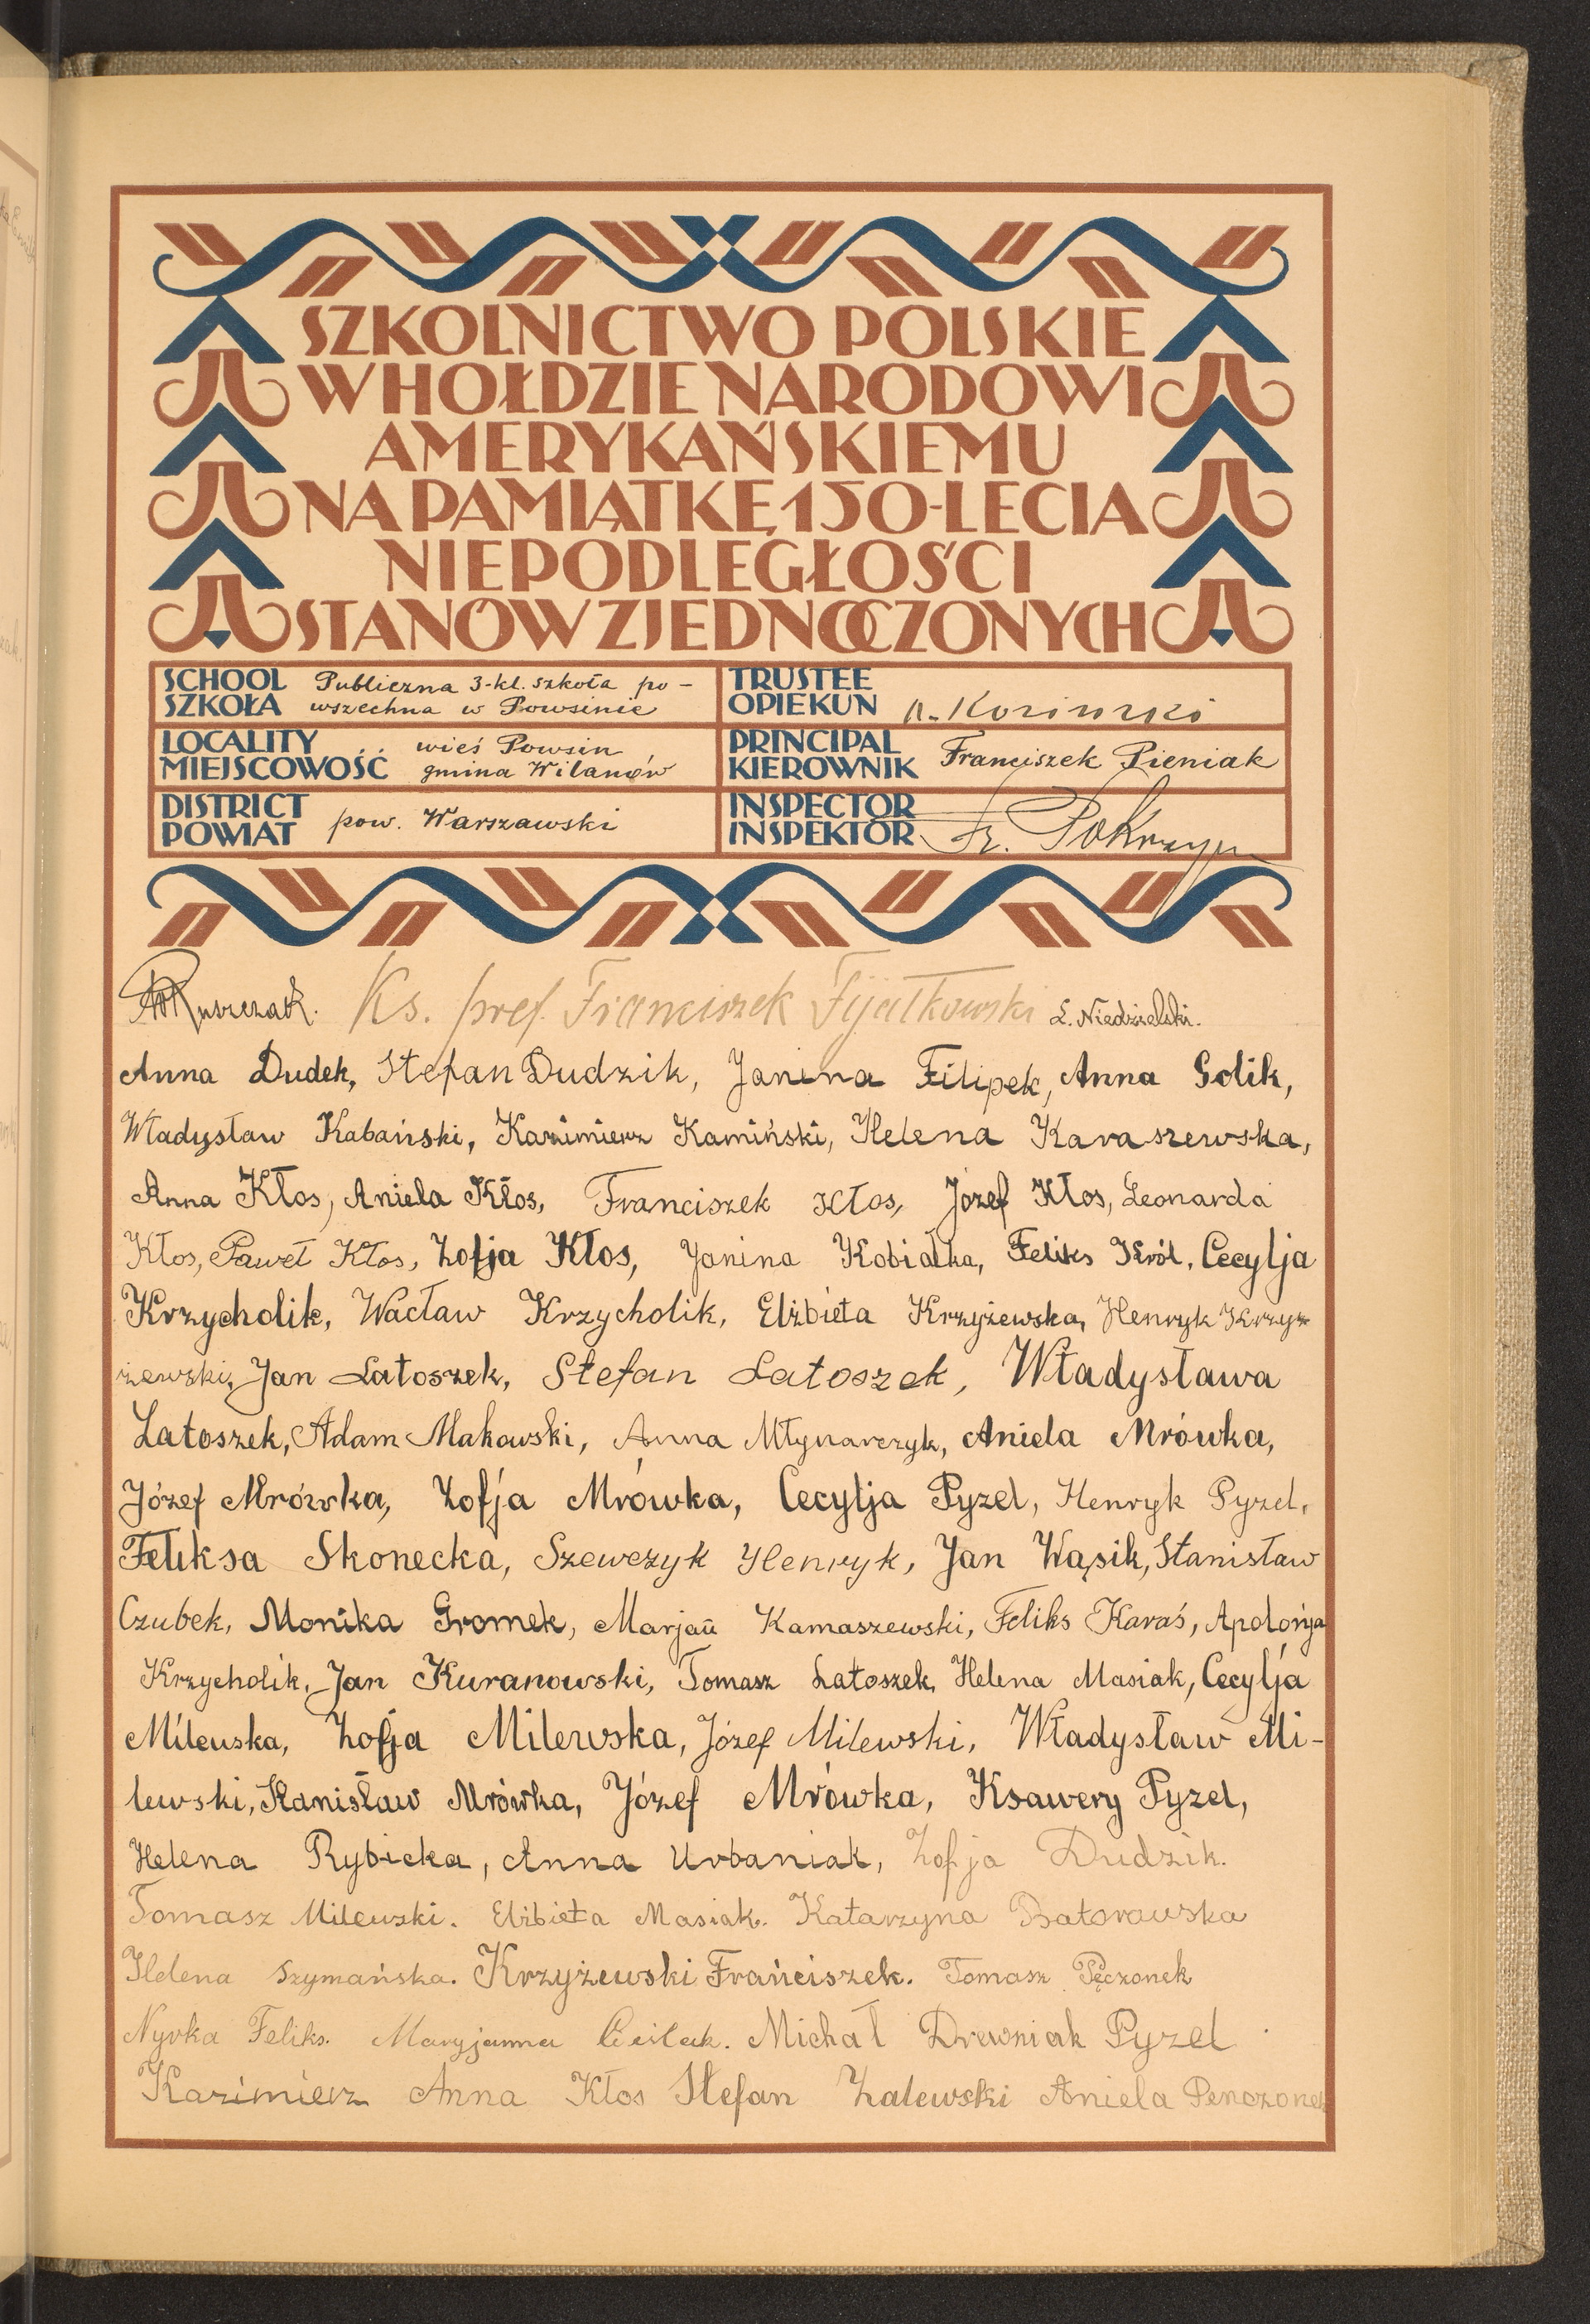 SZKOLNICTWO POLSKIE
W HOŁDZIE NARODOWI
AMERYKAŃSKIEMU
NA PAMIĄTKĘ 150-LECIA
NIEPODLEGŁOŚCI
STANÓW ZJEDNOCZONYCH
SCHOOL
SZKOŁA
Publiczna 3-kl. szkoła po-
wszechna w Powsinie
TRUSTEE
OPIEKUN
LOCALITY
MIEJSCOWOŚĆ
wieś Powsin
gmina Wilanów
PRINCIPAL
KIEROWNIK
Franciszek Pieniak
DISTRICT
POWIAT
pow. Warszawski
INSPECTOR
INSPEKTOR
Fr.
Ks. pref. Franciszek Fijałkowski L. Niedzielski.
Anna Dudek, Stefan Dudzik, Janina Filipek, Anna Golik,
Władysław Kabański, Kazimierz Kamiński, Helena Karaszewska,
Anna Kłos, Aniela Kłos, Franciszek Kłos, Józef Kłos, Leonarda
Kłos, Paweł Kłos, Zofja Kłos, Janina Kobiałka, Feliks Król, Cecylja
Krzycholik, Wacław Krzycholik, Elżbieta Krzyżewska, Henryk Krzyż
żewski, Jan Latoszek, Stefan Latoszek, Władysława
Latoszek, Adam Makowski, Anna Młynarczyk, Aniela Mrówka,
Józef Mrówka, Zofja Mrówka, Cecylja Pyzel, Henryk Pyzel,
Feliksa Skonecka, Szewczyk Henryk, Jan Wąsik, Stanisław
Czubek, Monika Gromek, Marjan Kamaszewski, Feliks Karaś, Apolonja
Krzycholik, Jan Kuranowski, Tomasz Latoszek, Helena Masiak, Cecylja
Milewska, Zofja Milewska, Józef Milewski, Władysław Mi-
lewski, Stanisław Mrówka, Józef Mrówka, Ksawery Pyzel,
Helena Rybicka, Anna Urbaniak, Zofja Dudzik.
Tomasz Milewski. Elżbieta Masiak. Katarzyna Batorowska
Helena Szymańska. Krzyżewski Franciszek. Tomasz Pęczonek
Nyrka Feliks. Maryjanna Cieilak. Michał Drewniak Pyzel
Kazimierz Anna Kłos Stefan Zalewski Aniela Penczonek